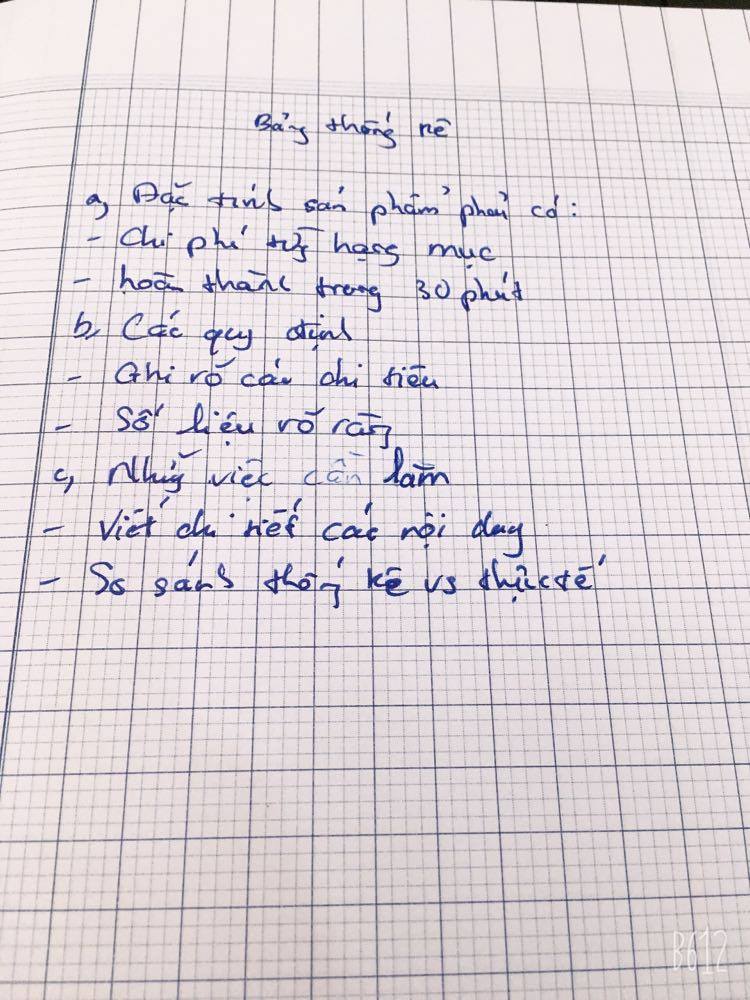 Bảng thống kê
a, Đặc tính sản phẩm phải có:
- Chi phí từng hạng mục
- hoàn thành trong 30 phút
b, Các quy định
- Ghi rõ các chi tiêu
- Số liệu rõ ràng
c, Những việc cần làm
- Viết chi tiết các nội dung
- So sánh thống kê vs thực tế
B612